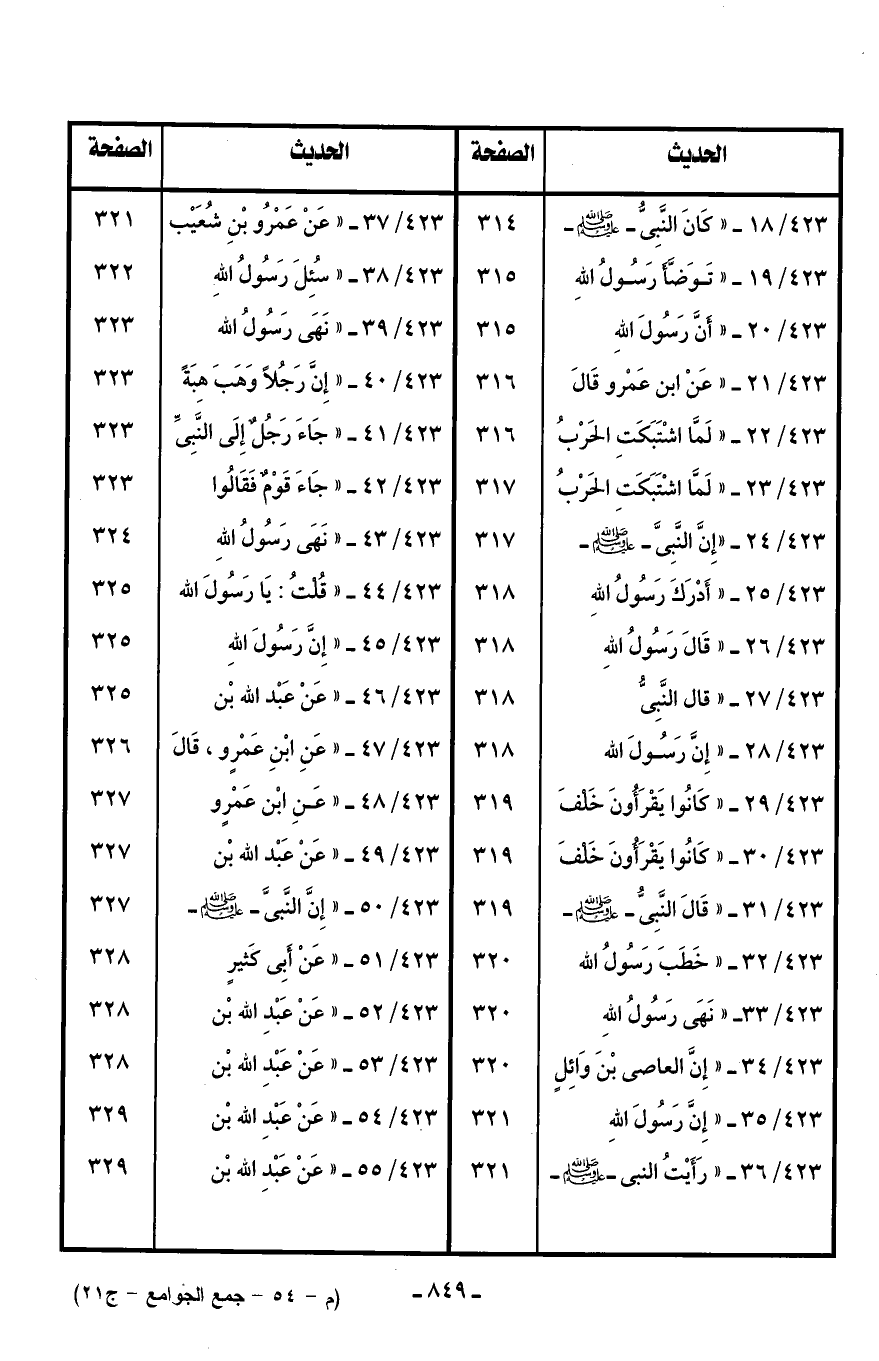 الحديث | الصفحة | الحديث | الصفحة
٤٢٣/ ١٨ ـ « كَانَ النَّبِىُّ ـ ﷺ ـ | ٣١٤ | ٤٢٣/ ٣٧ ـ « عَنْ عَمْرُو بْنِ شُعَيْب | ٣٢١
٤٢٣/ ١٩ ـ « تَـوَضَّأَ رَسُـولُ اللهِ | ٣١٥ | ٤٢٣/ ٣٨ ـ « سُئِلَ رَسُولُ اللهِ | ٣٢٢
٤٢٣/ ٢٠ ـ « أَنَّ رَسُولَ اللهِ | ٣١٥ | ٤٢٣/ ٣٩ ـ « نَهَى رَسُولُ الله | ٣٢٣
٤٢٣/ ٢١ ـ « عَنْ ابن عَمْرو قَالَ | ٣١٦ | ٤٢٣/ ٤٠ ـ « إِنَّ رَجُلاً وَهَبَ هِبَةً | ٣٢٣
٤٢٣/ ٢٢ ـ « لَمَّا اشْتَبَكَتِ الحَرْبُ | ٣١٦ | ٤٢٣/ ٤١ ـ « جَاءَ رَجُلٌ إِلَى النَّبِىِّ | ٣٢٣
٤٢٣/ ٢٣ ـ « لَمَّا اشْتَبَكَتِ الحَرْبُ | ٣١٧ | ٤٢٣/ ٤٢ ـ « جَاءَ قَوْمٌ فَقَالُوا | ٣٢٣
٤٢٣/ ٢٤ ـ «إِنَّ النَّبِىَّ ـ ﷺ ـ | ٣١٧ | ٤٢٣/ ٤٣ ـ « نَهَى رَسُولُ اللهِ | ٣٢٤
٤٢٣/ ٢٥ ـ « أَدْرَكَ رَسُولُ اللهِ | ٣١٨ | ٤٢٣/ ٤٤ ـ « قُلْتُ : يَا رَسُولَ الله | ٣٢٥
٤٢٣/ ٢٦ ـ « قَالَ رَسُولُ اللهِ | ٣١٨ | ٤٢٣/ ٤٥ ـ « إِنَّ رَسُولَ اللهِ | ٣٢٥
٤٢٣/ ٢٧ ـ « قال النَّبِىُّ | ٣١٨ | ٤٢٣/ ٤٦ ـ « عَنْ عَبْدِ الله بْن | ٣٢٥
٤٢٣/ ٢٨ ـ « إِنَّ رَسُـولَ الله | ٣١٨ | ٤٢٣/ ٤٧ ـ « عَنِ ابْنِ عَمْرٍو ، قَالَ | ٣٢٦
٤٢٣/ ٢٩ ـ « كَانُوا يَقْرَأُونَ خَلْفَ | ٣١٩ | ٤٢٣/ ٤٨ ـ « عَـنِ ابْن عَمْرٍو | ٣٢٧
٤٢٣/ ٣٠ ـ « كَانُوا يَقْرَأُونَ خَلْفَ | ٣١٩ | ٤٢٣/ ٤٩ ـ « عَنْ عَبْدِ الله بْن | ٣٢٧
٤٢٣/ ٣١ ـ « قَالَ النَّبِىُّ ـ ﷺ ـ | ٣١٩ | ٤٢٣/ ٥٠ ـ « إِنَّ النَّبِىَّ ـ ﷺ ـ | ٣٢٧
٤٢٣/ ٣٢ ـ « خَطَبَ رَسُولُ الله | ٣٢٠ | ٤٢٣/ ٥١ ـ « عَنْ أَبِى كَثِيرٍ | ٣٢٨
٤٢٣/ ٣٣ـ « نَهَى رَسُولُ اللهِ | ٣٢٠ | ٤٢٣/ ٥٢ ـ « عَنْ عَبْدِ الله بْن | ٣٢٨
٤٢٣/ ٣٤ ـ « إِنَّ العاصى بْنَ وَائِلٍ | ٣٢٠ | ٤٢٣/ ٥٣ ـ « عَنْ عَبْدِ الله بْن | ٣٢٨
٤٢٣/ ٣٥ ـ « إِنَّ رَسُولَ اللهِ | ٣٢١ | ٤٢٣/ ٥٤ ـ « عَنْ عَبْدِ الله بْن | ٣٢٩
٤٢٣/ ٣٦ ـ « رَأَيْتُ النبى ـ ﷺ ـ | ٣٢١ | ٤٢٣/ ٥٥ ـ « عَنْ عَبْدِ الله بْن | ٣٢٩
ـ ٨٤٩ ـ
(م - ٥٤ - جمع الجوامع - ج٢١)